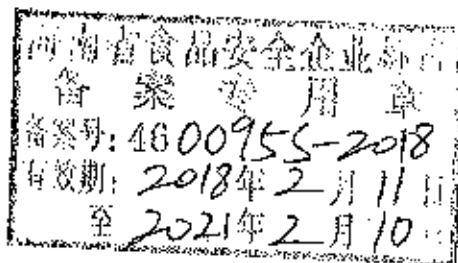 河南省食品安全企业标准
备案专用章
备案号: 4600955-2018
有效期: 2018年2月11日
至 2021年2月10日